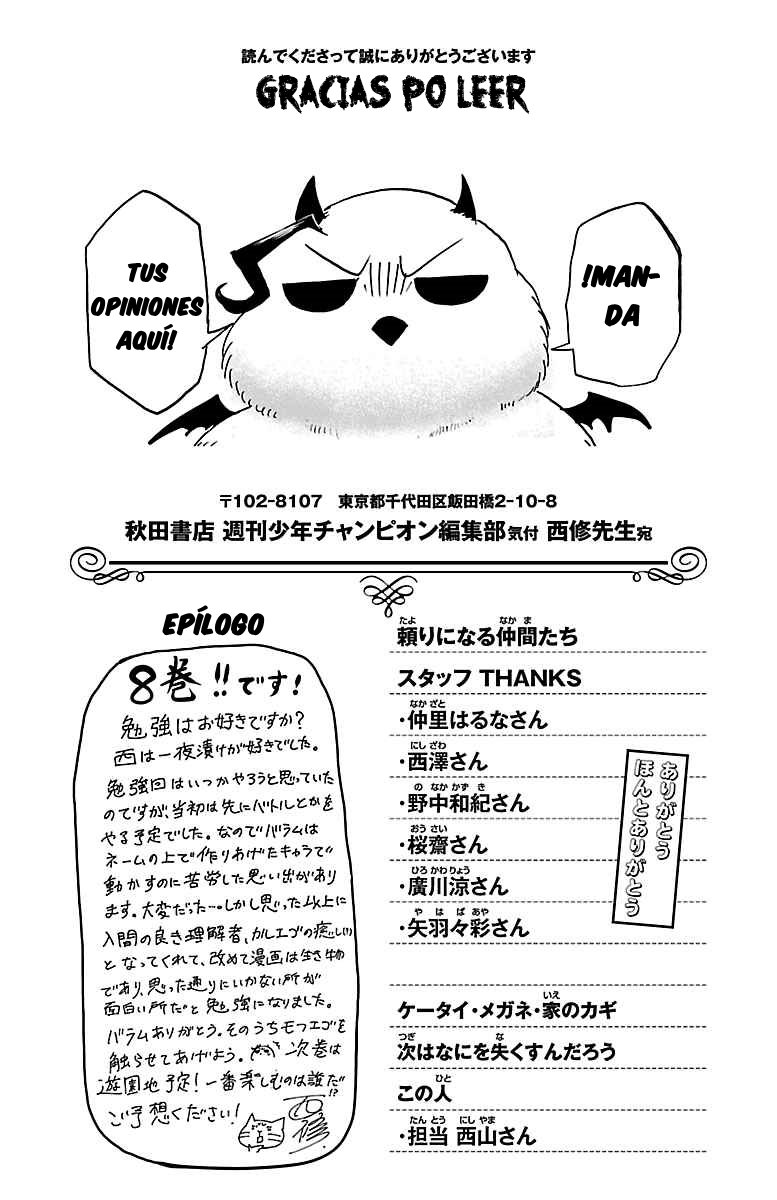 読んでくださって誠にありがとうございます
GRACIAS PO LEER
!MAN-
DA
TUS
OPINIONES
AQUÍ!
〒102-8107　東京都千代田区飯田橋2-10-8
秋田書店 週刊少年チャンピオン編集部気付 西修先生宛
EPÍLOGO
8巻!!です!
勉強はお好きですか?
西は一夜漬けが好きでした。
勉強回はいつかやろうと思っていた
のですが、当初は先にバトルとかを
やる予定でした。なのでバラムは
ネームの上で作りあげたキャラで
動かすのに苦労した思い出があり
ます。大変だった…。しかし思った以上に
入間の良き理解者、カルエゴの癒し(い)
となってくれて、改めて漫画は生き物
であり、思った通りにいかない所が
面白い所だと勉強になりました。
バラムありがとう。そのうちモフエゴを
触らせてあげよう。次巻は
遊園地予定!一番楽しむのは誰だ!?
ご予想ください!
西修
頼りになる仲間たち
スタッフ THANKS
・仲里はるなさん
・西澤さん
・野中和紀さん
・桜齋さん
・廣川涼さん
・矢羽々彩さん
ありがとう
ほんとありがとう
ケータイ・メガネ・家のカギ
次はなにを失くすんだろう
この人
・担当 西山さん